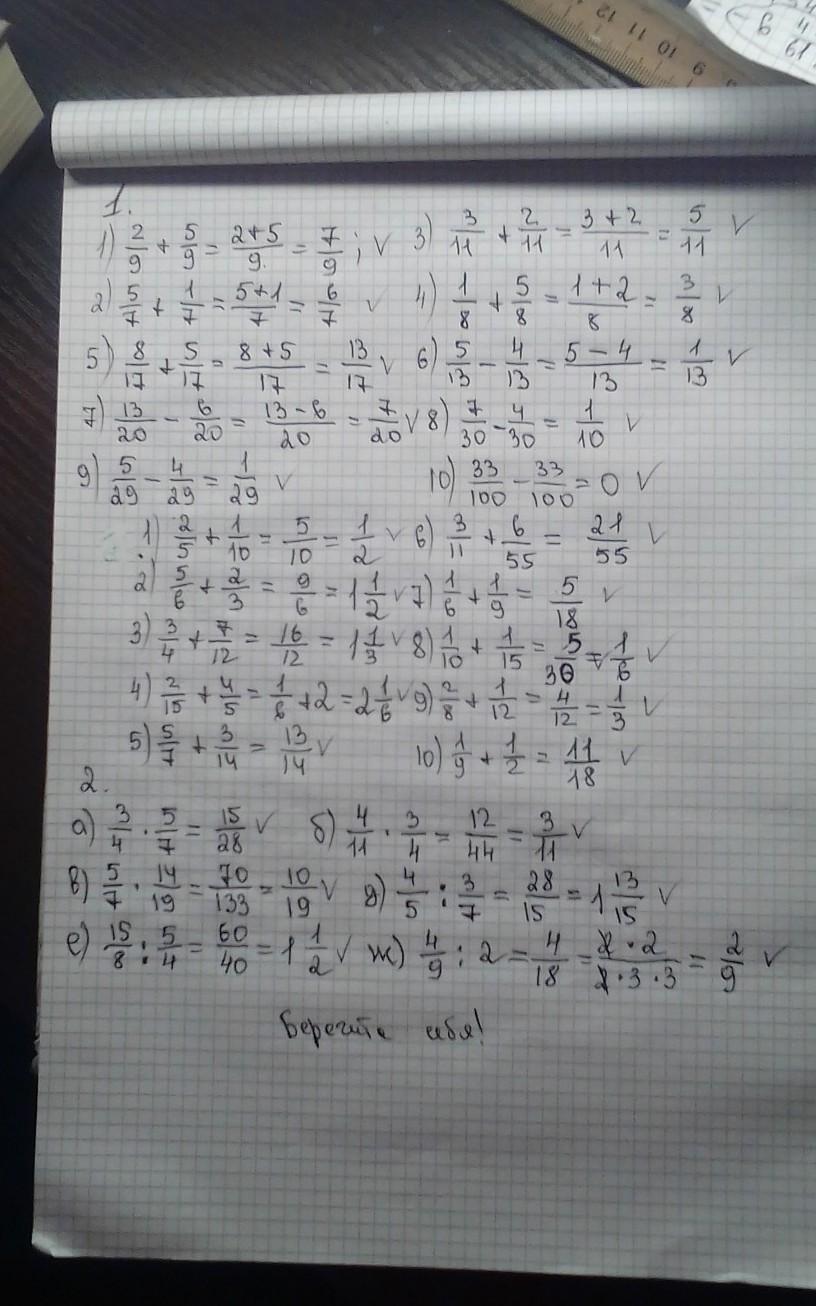 1.
1) 2/9 + 5/9 = (2+5)/9 = 7/9; V 3) 3/11 + 2/11 = (3+2)/11 = 5/11 V
2) 5/7 + 1/7 = (5+1)/7 = 6/7 V 4) 1/8 + 5/8 = (1+2)/8 = 3/8 V
5) 8/17 + 5/17 = (8+5)/17 = 13/17 V 6) 5/13 - 4/13 = (5-4)/13 = 1/13 V
7) 13/20 - 6/20 = (13-6)/20 = 7/20 V 8) 7/30 - 4/30 = 1/10 V
9) 5/29 - 4/29 = 1/29 V 10) 33/100 - 33/100 = 0 V
1) 2/5 + 1/10 = 5/10 = 1/2 V 6) 3/11 + 6/55 = 21/55 V
2) 5/6 + 2/3 = 9/6 = 1 1/2 V 7) 1/6 + 1/9 = 5/18 V
3) 3/4 + 7/12 = 16/12 = 1 1/3 V 8) 1/10 + 1/15 = 5/30 = 1/6 V
4) 2/15 + 4/5 = 1/6 + 2 = 2 1/6 V 9) 2/8 + 1/12 = 4/12 = 1/3 V
5) 5/7 + 3/14 = 13/14 V 10) 1/9 + 1/2 = 11/18 V
2.
а) 3/4 · 5/7 = 15/28 V б) 4/11 · 3/4 = 12/44 = 3/11 V
в) 5/7 · 14/19 = 70/133 = 10/19 V д) 4/5 : 3/7 = 28/15 = 1 13/15 V
е) 15/8 : 5/4 = 60/40 = 1 1/2 V ж) 4/9 : 2 = 4/18 = (2·2)/(2·3·3) = 2/9 V
Берегите себя!
12 11 10 9
6 4
61